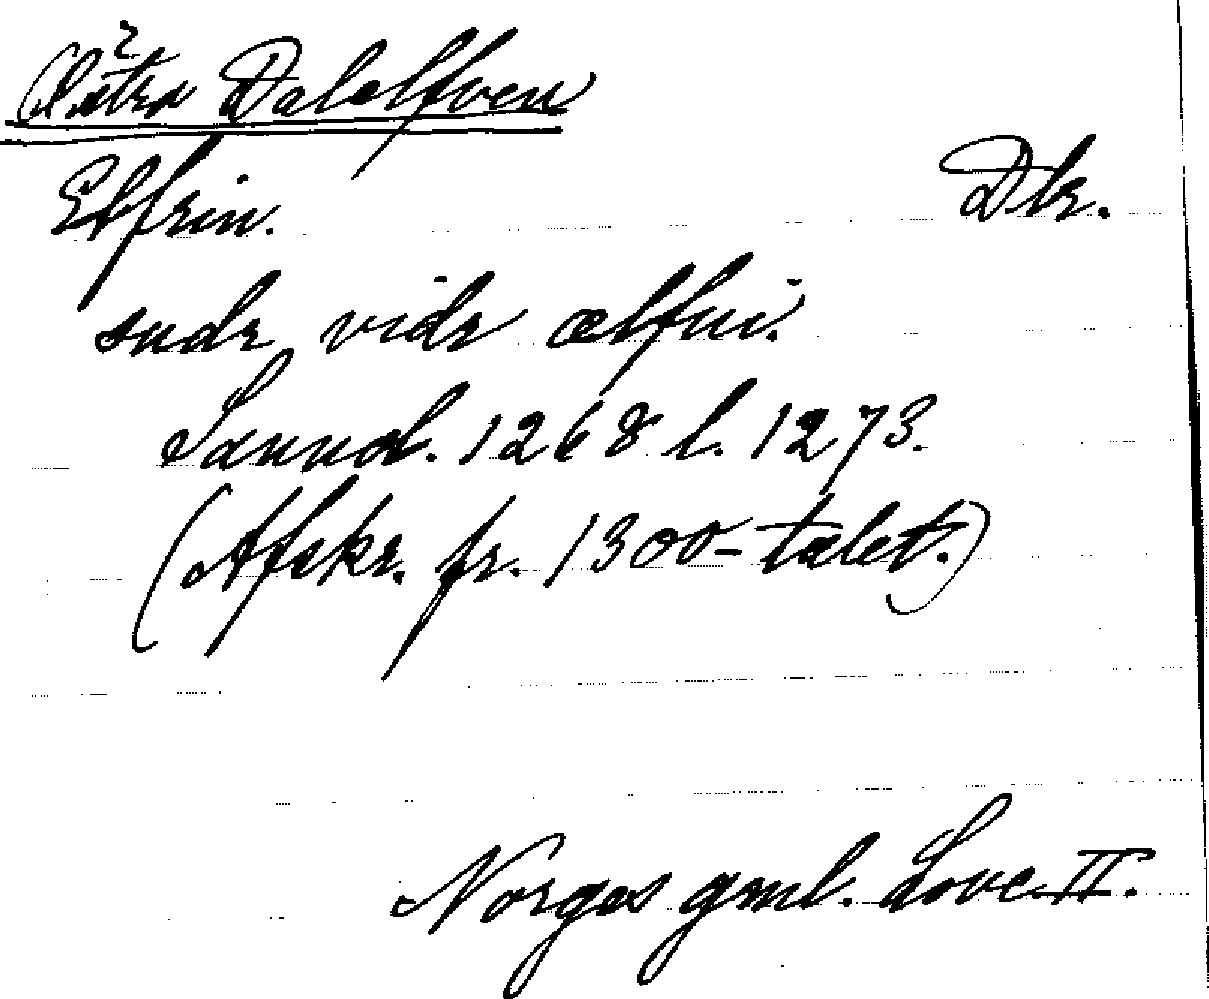 (Östra Dalelfven
Elfrin. Dlr.
sudr vidr ælfui.
Sannol. 1268 l. 1273.
(Afskr. fr. 1300-talet.)
Norges gml. Love II.